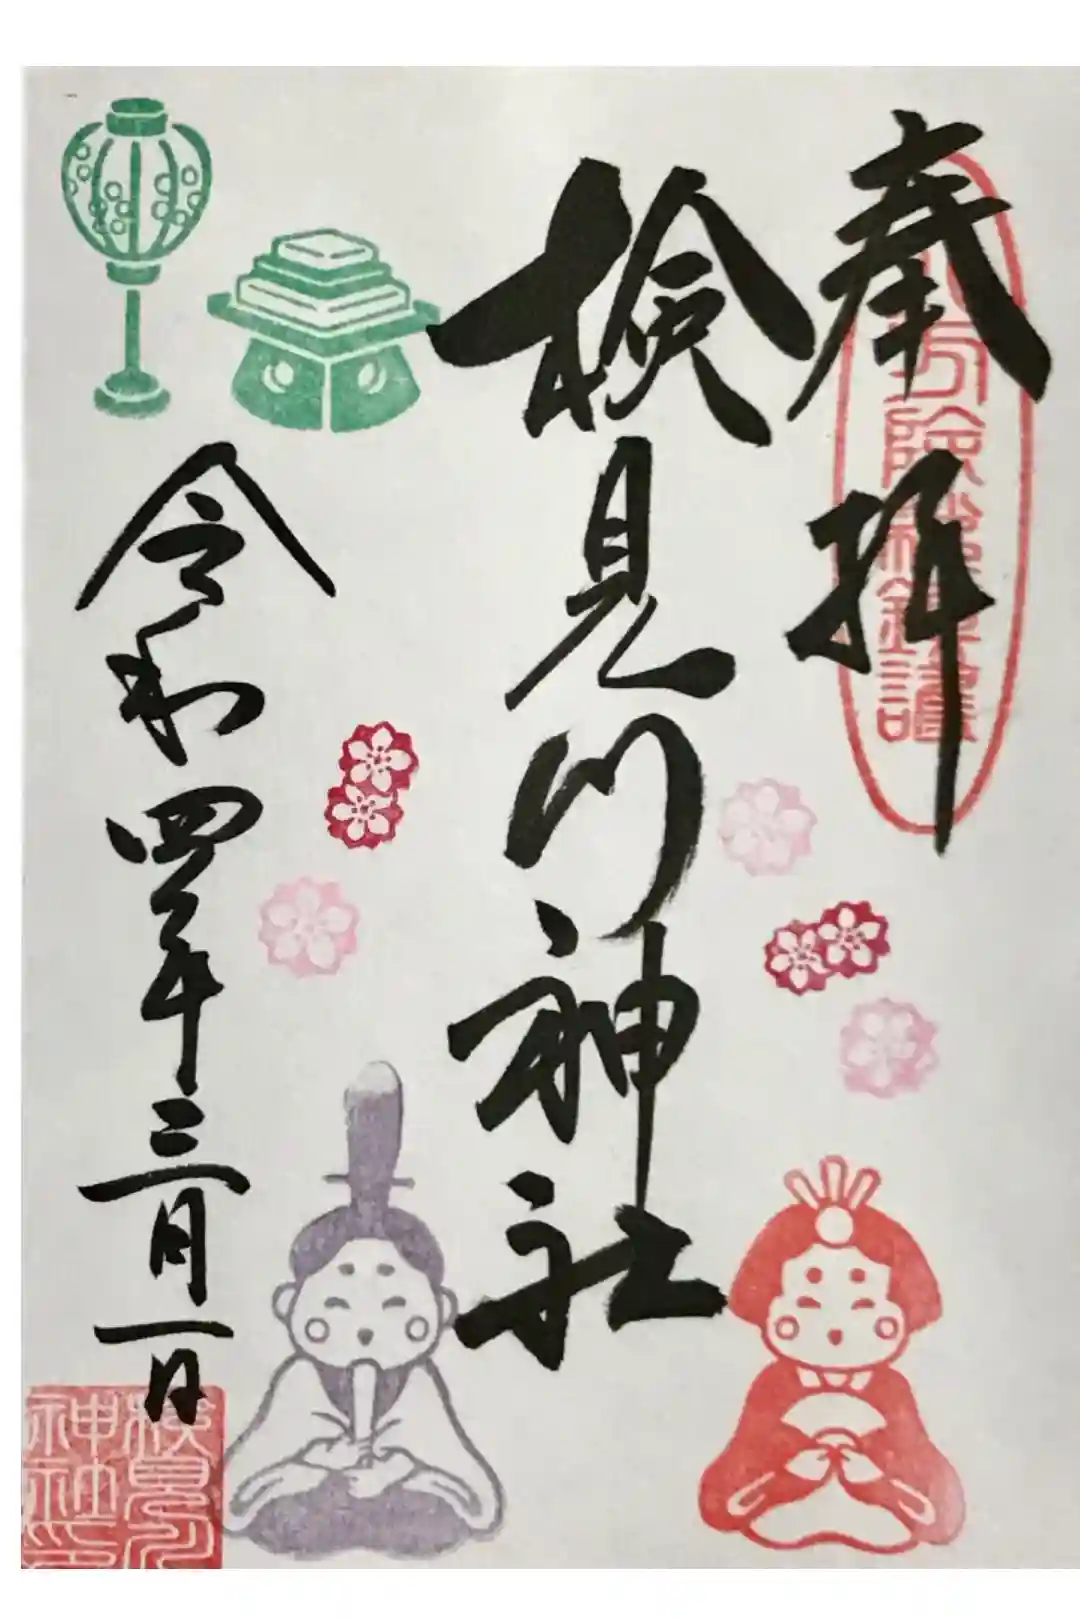 奉拝
検見川神社
令和四年三月一日
検見川
神社印